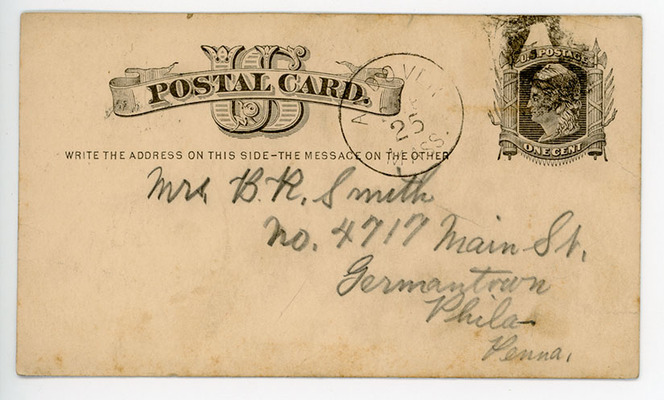 US
POSTAL CARD.
U.S. POSTAGE
ONE CENT
ANDOVER
25
MASS.
WRITE THE ADDRESS ON THIS SIDE-THE MESSAGE ON THE OTHER
Mrs. B.R. Smith
No. 4717 Main St.
Germantown
Phila
Penna.